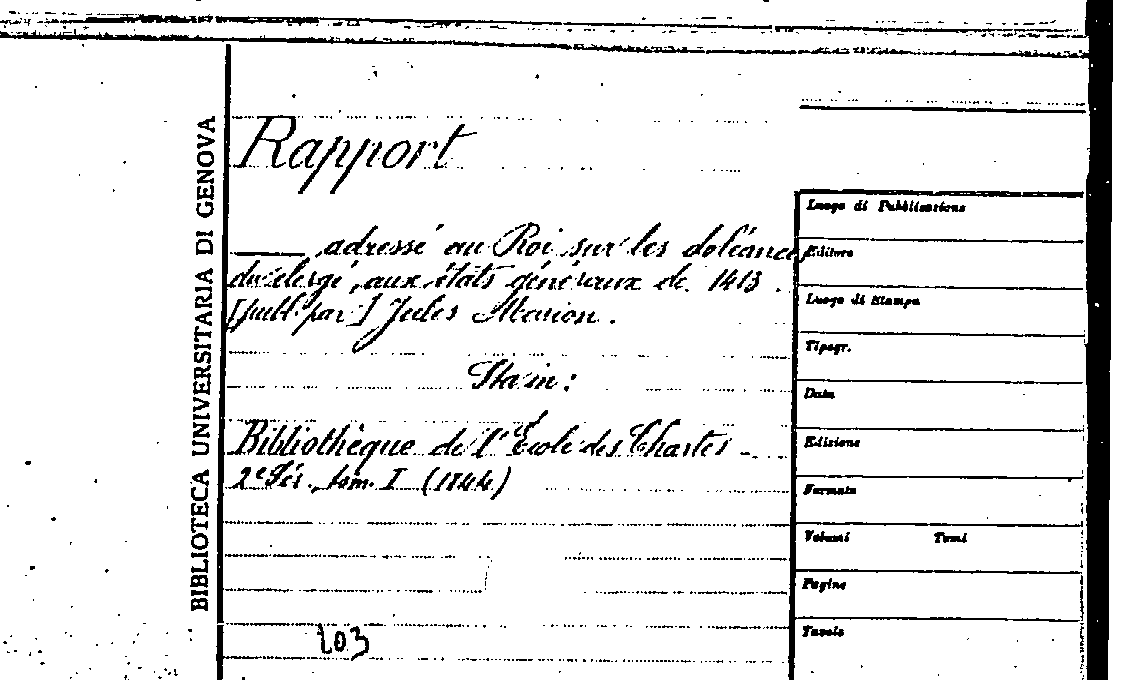 BIBLIOTECA UNIVERSITARIA DI GENOVA
Rapport
____, adressé au Roi sur les doléances
du clergé, aux états généraux de 1413.
[publ. par] Jules Marion.
Sta in:
Bibliothèque de l'École des Chartes -
2e Sér., tom. I (1844)
203
Luogo di Pubblicazione
Editore
Luogo di Stampa
Tipogr.
Data
Edizione
Formato
Volumi Tomi
Pagine
Tavole